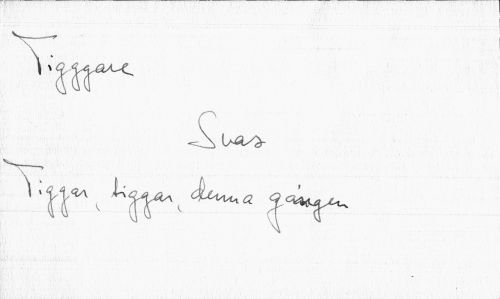 Tigggare
Svar
Tiggar, tiggar, denna gången